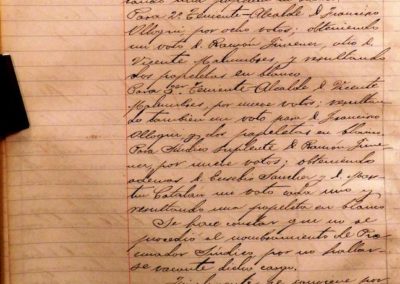 Para 2º Teniente-Alcalde D. Francisco
por ocho votos; obteniendo
un voto D. Ramón Jimenez, otro D.
Vicente y resultando
dos papeletas en blanco.
Para 3er Teniente Alcalde D. Vicente
por nueve votos; resultan
do tambien un voto para D. Francisco
y dos papeletas en blanco.
Para Sindico Suplente D. Ramon Jime
nez, por nueve votos; obteniendo
ademas D. Eusebio Sanchez y D.
Catalan un voto cada uno y
resultando una papeleta en blanco
Se hace constar que no se
procedió al nombramiento de Pro
curador Síndico por no hallar
se vacante dicho cargo.
por